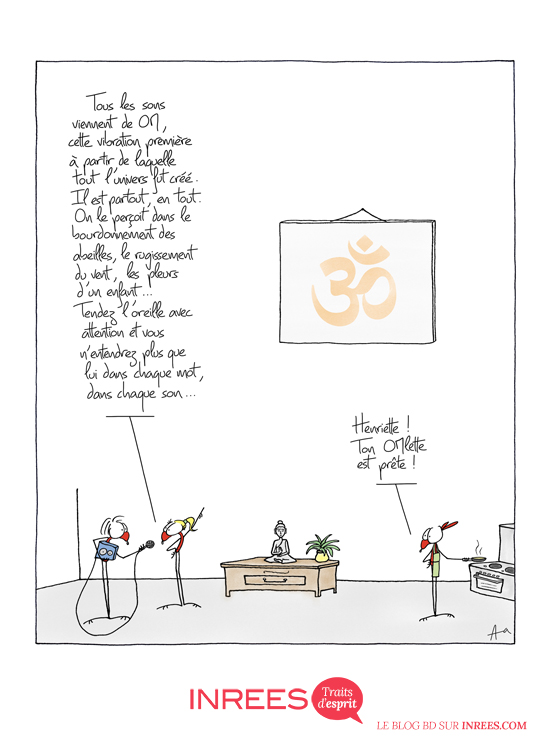 Tous les sons
viennent de OM,
cette vibration première
à partir de laquelle
tout l'univers fut créé.
Il est partout, en tout.
On le perçoit dans le
bourdonnement des
abeilles, le rugissement
du vent, les pleurs
d'un enfant...
Tendez l'oreille avec
attention et vous
n'entendrez plus que
lui dans chaque mot,
dans chaque son...
ॐ
Henriette !
Ton OMlette
est prête !
Aa
INREES
Traits
d'esprit
LE BLOG BD SUR INREES.COM